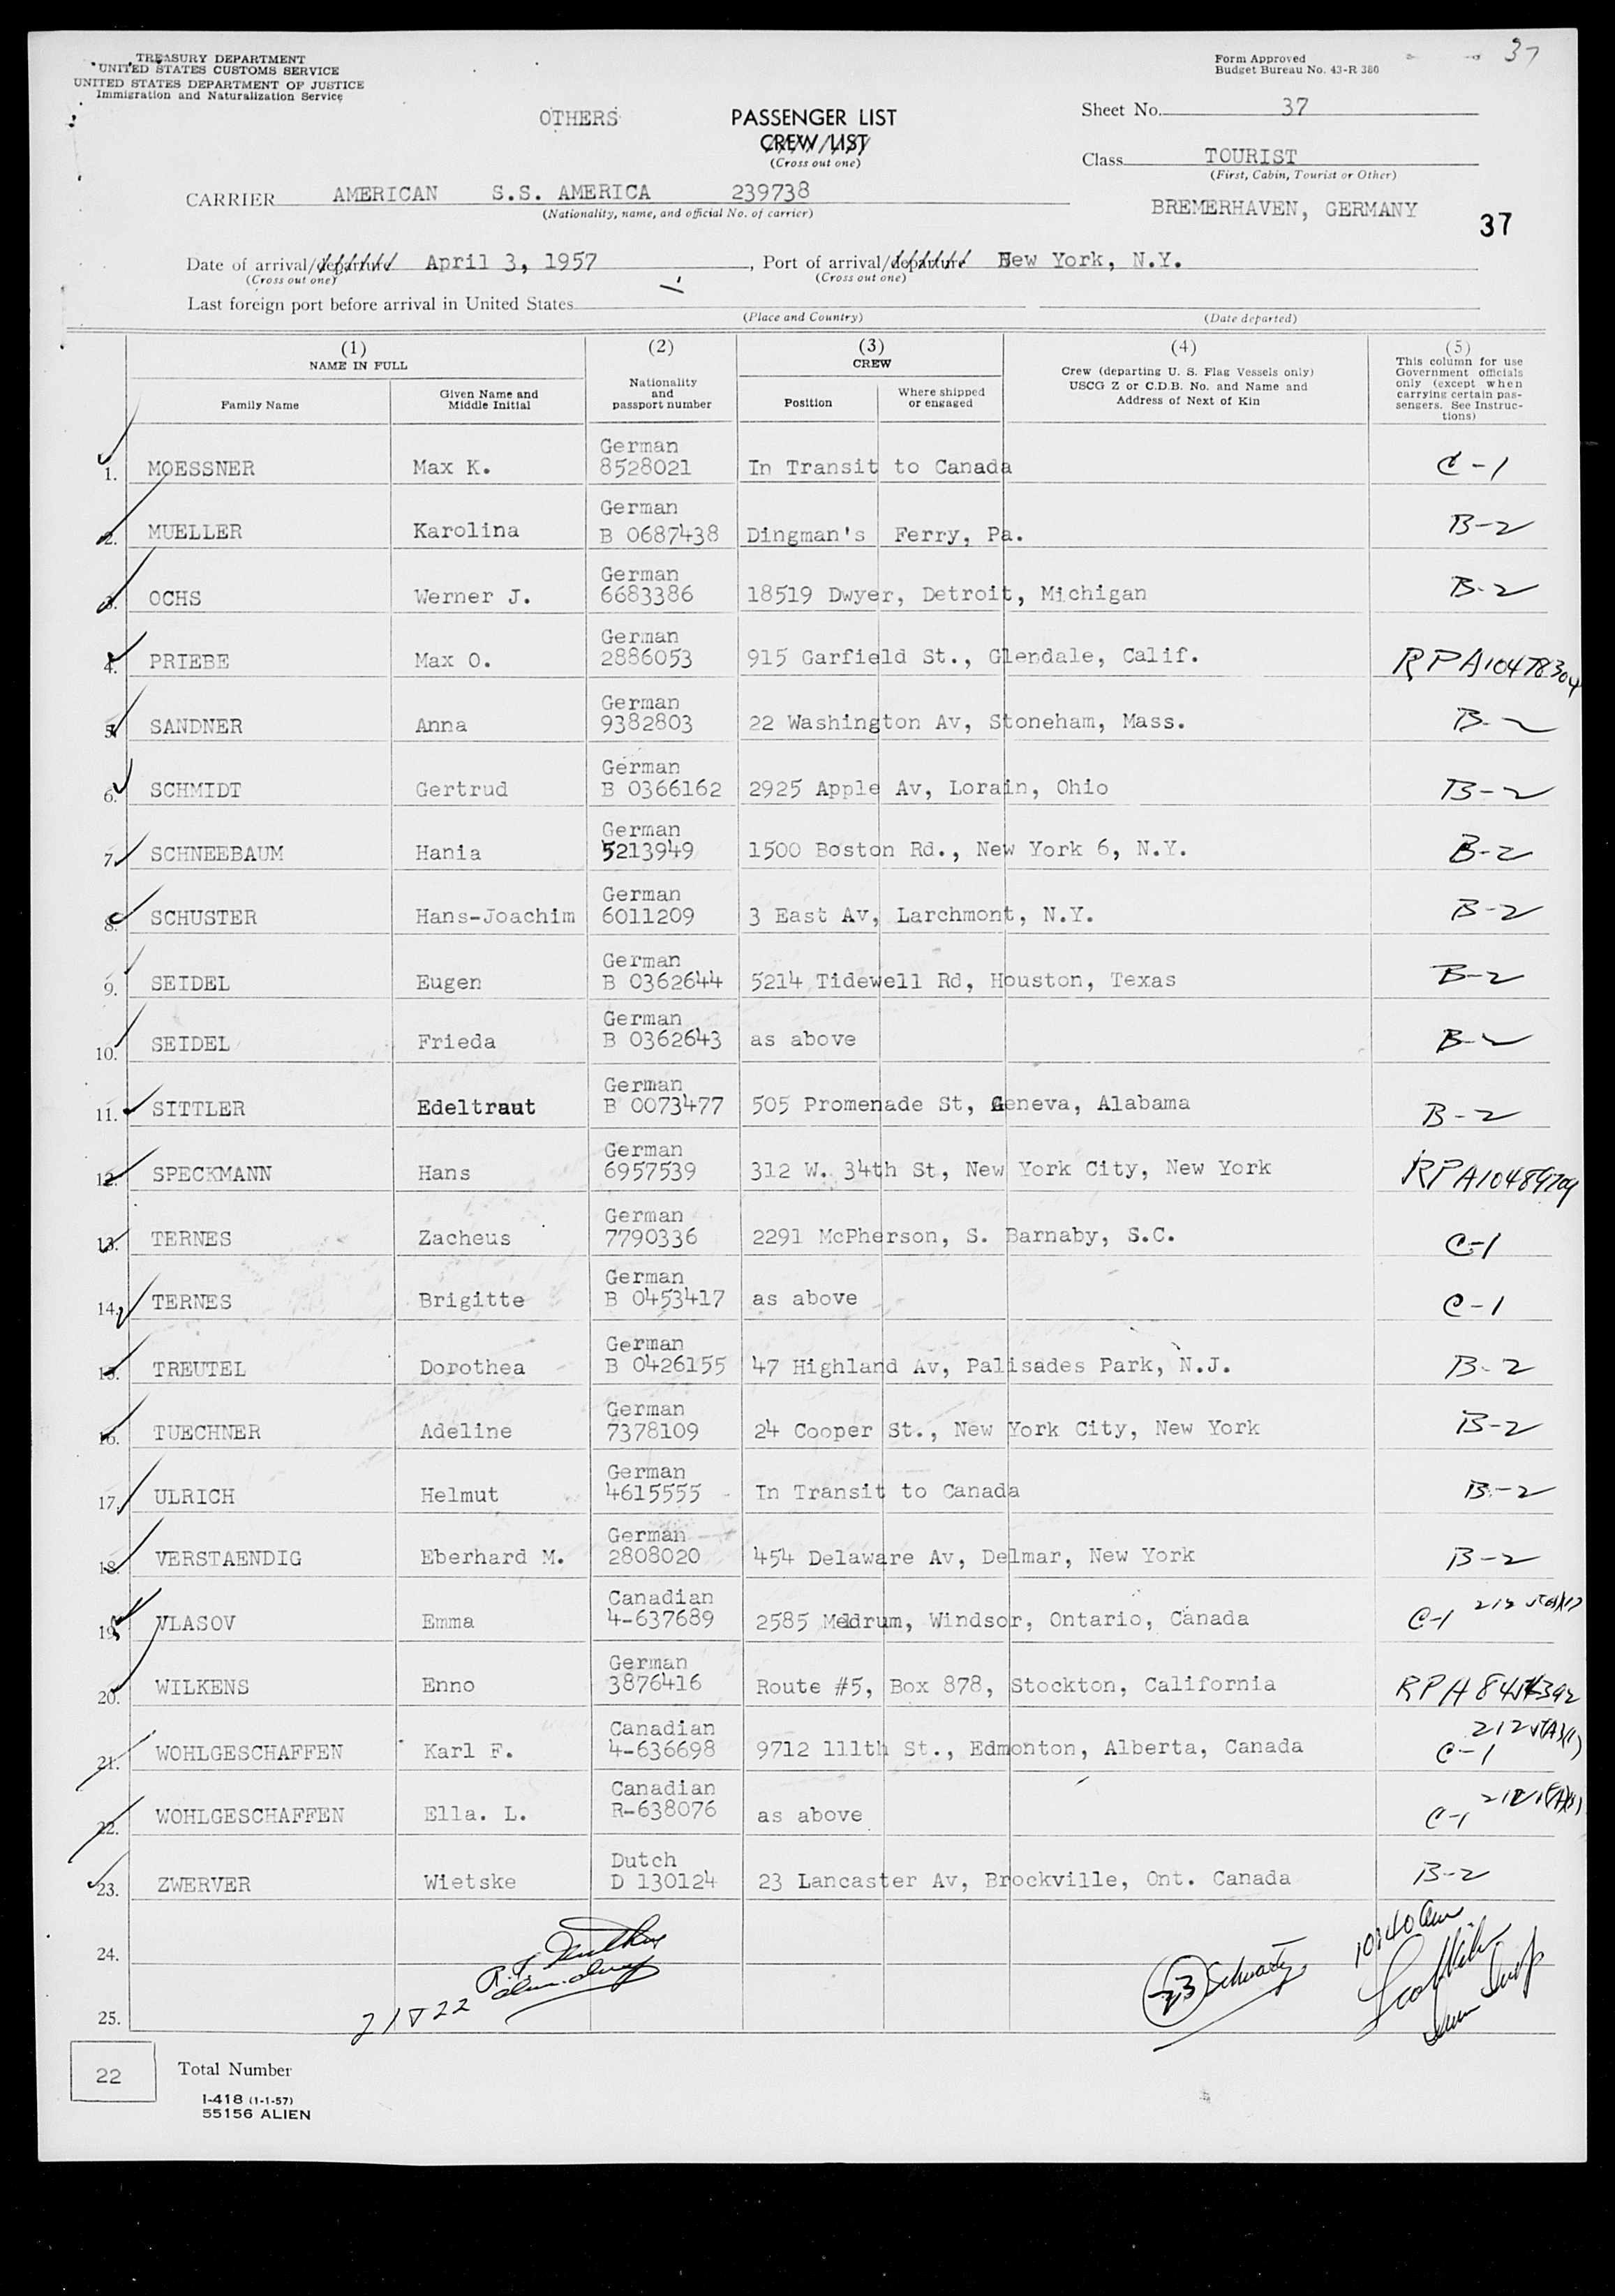 TREASURY DEPARTMENT
UNITED STATES CUSTOMS SERVICE
UNITED STATES DEPARTMENT OF JUSTICE
Immigration and Naturalization Service
Form Approved
Budget Bureau No. 43-R 380
37
OTHERS
PASSENGER LIST
CREW LIST
(Cross out one)
Sheet No. 37
Class TOURIST
(First, Cabin, Tourist or Other)
CARRIER AMERICAN S.S. AMERICA 239738
(Nationality, name, and official No. of carrier)
BREMERHAVEN, GERMANY
37
Date of arrival/departure April 3, 1957, Port of arrival/departure New York, N.Y.
(Cross out one) (Cross out one)
Last foreign port before arrival in United States
(Place and Country) (Date departed)
(1) NAME IN FULL
Family Name
Given Name and Middle Initial
(2) Nationality and passport number
(3) CREW
Position
Where shipped or engaged
(4) Crew (departing U. S. Flag Vessels only) USCG Z or C.D.B. No. and Name and Address of Next of Kin
(5) This column for use Government officials only (except when carrying certain passengers. See Instructions)
1. MOESSNER Max K. German 8528021 In Transit to Canada C-1
2. MUELLER Karolina German B 0687438 Dingman's Ferry, Pa. B-2
3. OCHS Werner J. German 6683386 18519 Dwyer, Detroit, Michigan B-2
4. PRIEBE Max O. German 2886053 915 Garfield St., Glendale, Calif. RP A10478304
5. SANDNER Anna German 9382803 22 Washington Av, Stoneham, Mass. B-2
6. SCHMIDT Gertrud German B 0366162 2925 Apple Av, Lorain, Ohio B-2
7. SCHNEEBAUM Hania German 5213949 1500 Boston Rd., New York 6, N.Y. B-2
8. SCHUSTER Hans-Joachim German 6011209 3 East Av, Larchmont, N.Y. B-2
9. SEIDEL Eugen German B 0362644 5214 Tidewell Rd, Houston, Texas B-2
10. SEIDEL Frieda German B 0362643 as above B-2
11. SITTLER Edeltraut German B 0073477 505 Promenade St, Geneva, Alabama B-2
12. SPECKMANN Hans German 6957539 312 W. 34th St, New York City, New York RP
13. TERNES Zacheus German 7790336 2291 McPherson, S. Barnaby, S.C. C-1
14. TERNES Brigitte German B 0453417 as above C-1
15. TREUTEL Dorothea German B 0426155 47 Highland Av, Palisades Park, N.J. B-2
16. TUECHNER Adeline German 7378109 24 Cooper St., New York City, New York B-2
17. ULRICH Helmut German 4615555 In Transit to Canada B-2
18. VERSTAENDIG Eberhard M. German 2808020 454 Delaware Av, Delmar, New York B-2
19. VLASOV Emma Canadian 4-637689 2585 Meldrum, Windsor, Ontario, Canada C-1
20. WILKENS Enno German 3876416 Route #5, Box 878, Stockton, California RP
21. WOHLGESCHAFFEN Karl F. Canadian 4-636698 9712 111th St., Edmonton, Alberta, Canada C-1
22. WOHLGESCHAFFEN Ella. L. Canadian R-638076 as above C-1
23. ZWERVER Wietske Dutch D 130124 23 Lancaster Av, Brockville, Ont. Canada B-2
24.
25.
10:40 am
23 Schwartz
22
Total Number
I-418 (1-1-57)
55156 ALIEN